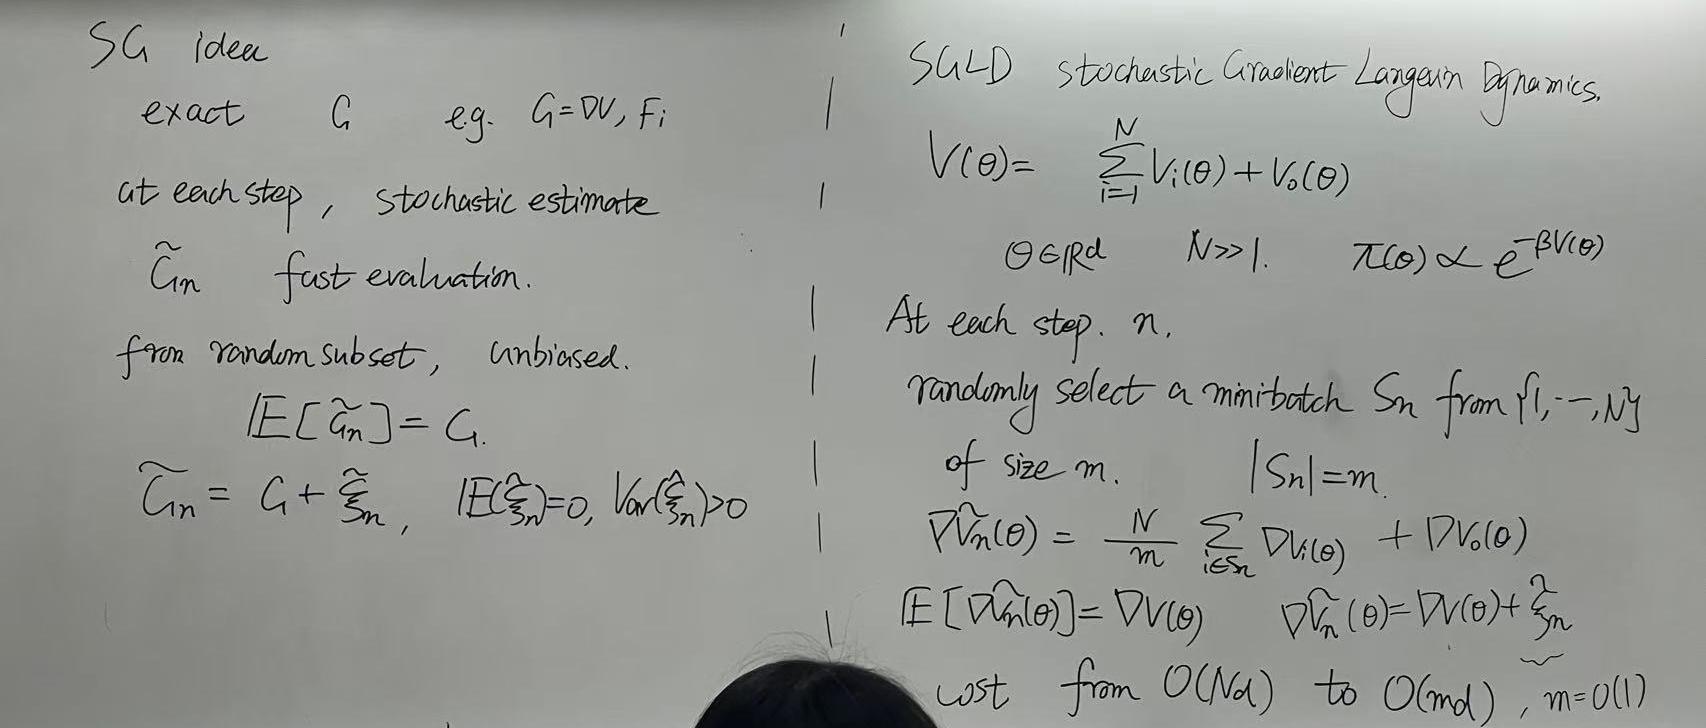 SG idea
exact G e.g. G=∇V, Fi
at each step, stochastic estimate
G̃n fast evaluation.
from random subset, unbiased.
𝔼[G̃n] = G.
G̃n = G + ξ̃n, 𝔼(ξ̃n)=0, Var(ξ̃n)>0
SGLD stochastic Gradient Langevin Dynamics.
V(θ) = ∑_{i=1}^{N} Vi(θ) + V0(θ)
θ∈ℝ^d N>>1. π(θ) ∝ e^{-βV(θ)}
At each step. n.
randomly select a minibatch Sn from {1,…,N}
of size m. |Sn|=m.
∇Ṽn(θ) = N/m ∑_{i∈Sn} ∇Vi(θ) + ∇V0(θ)
𝔼[∇Ṽn(θ)] = ∇V(θ) ∇Ṽn(θ) = ∇V(θ) + ξ̃n
cost from O(Nd) to O(md), m=O(1)